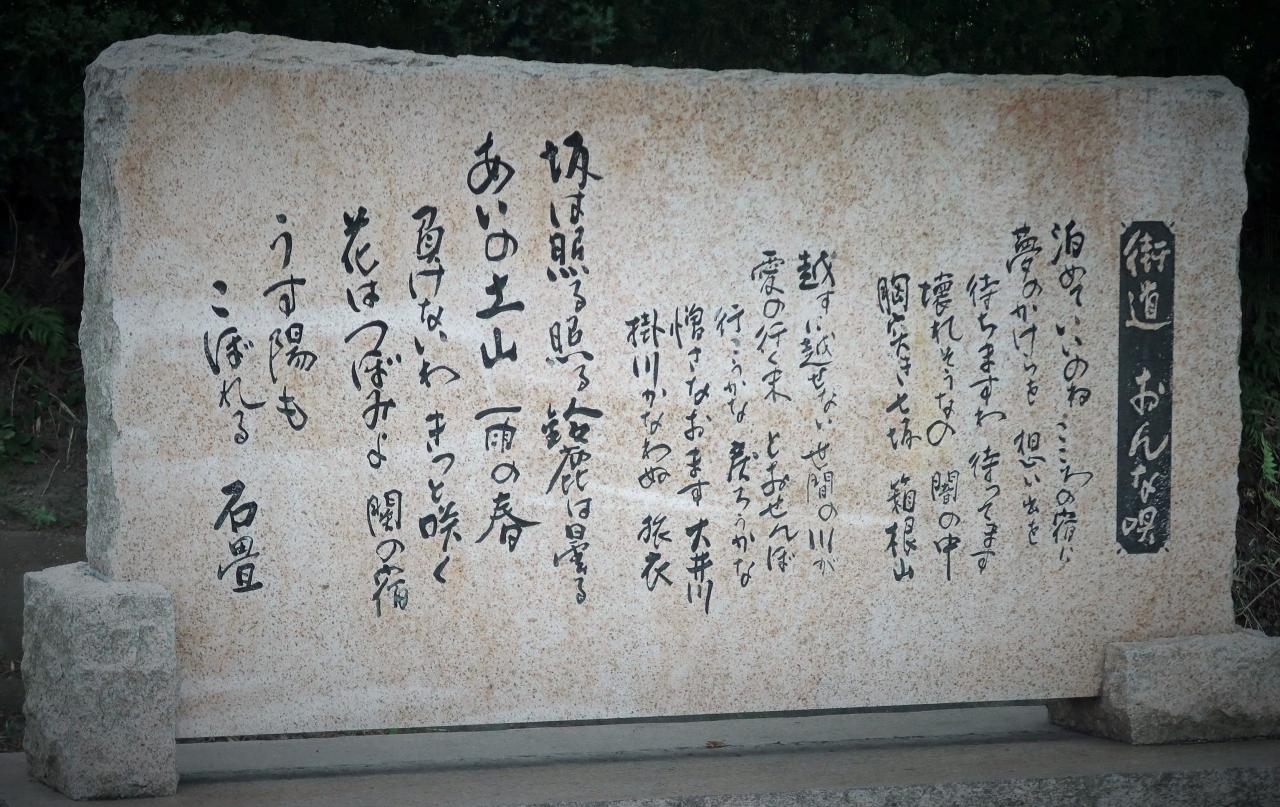 街道 おんな唄
泊めていいのね こころの宿に
夢のかけらを 想い出を
待ちますわ 待ってます
壊れそうなの 闇の中
胸突き七坂 箱根山
越すに越せない 世間の川が
愛の行く末 とおせんぼ
行こうかな 戻ろうかな
憎さなおます 大井川
掛川かなわぬ 旅衣
坂は照る照る 鈴鹿は曇る
あいの土山 雨の春
負けないわ きっと咲く
花はつぼみよ 関の宿
うす陽も
こぼれる 石畳